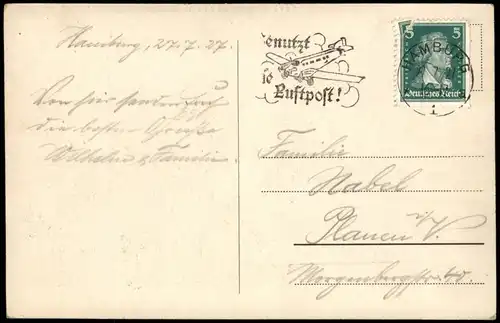 Hamburg, 27.7.27.
Von hier sendet Euch
die besten Grüsse
Wilhelm & Familie
Benutzt
die
Luftpost!
5 5
Deutsches Reich
HAMBURG
1
Familie
Nabel
Plauen i/V.
Morgenbergstr. 40.